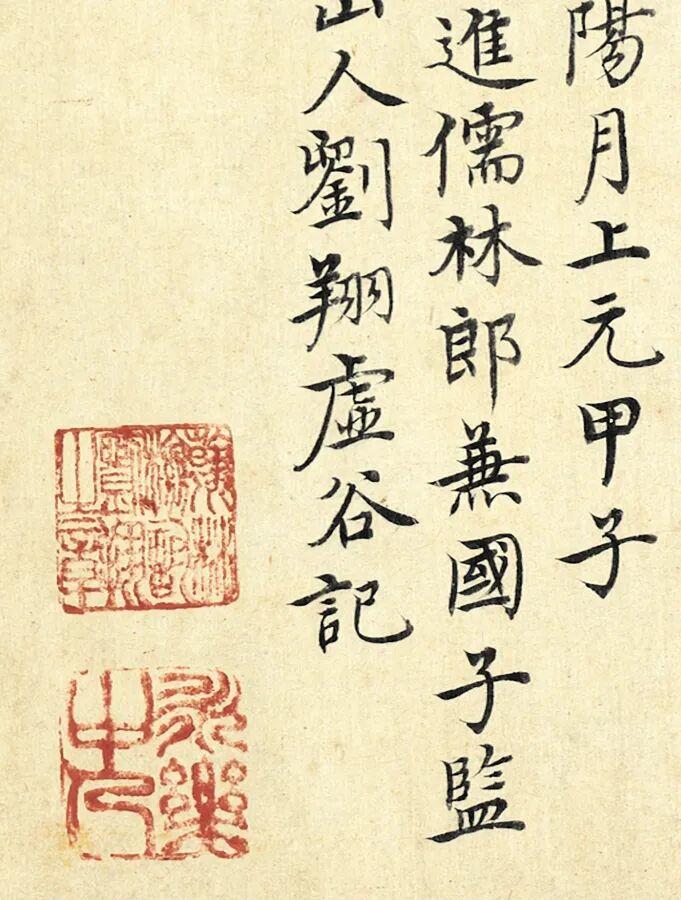 陽月上元甲子
進儒林郎兼國子監
山人劉翔虛谷記